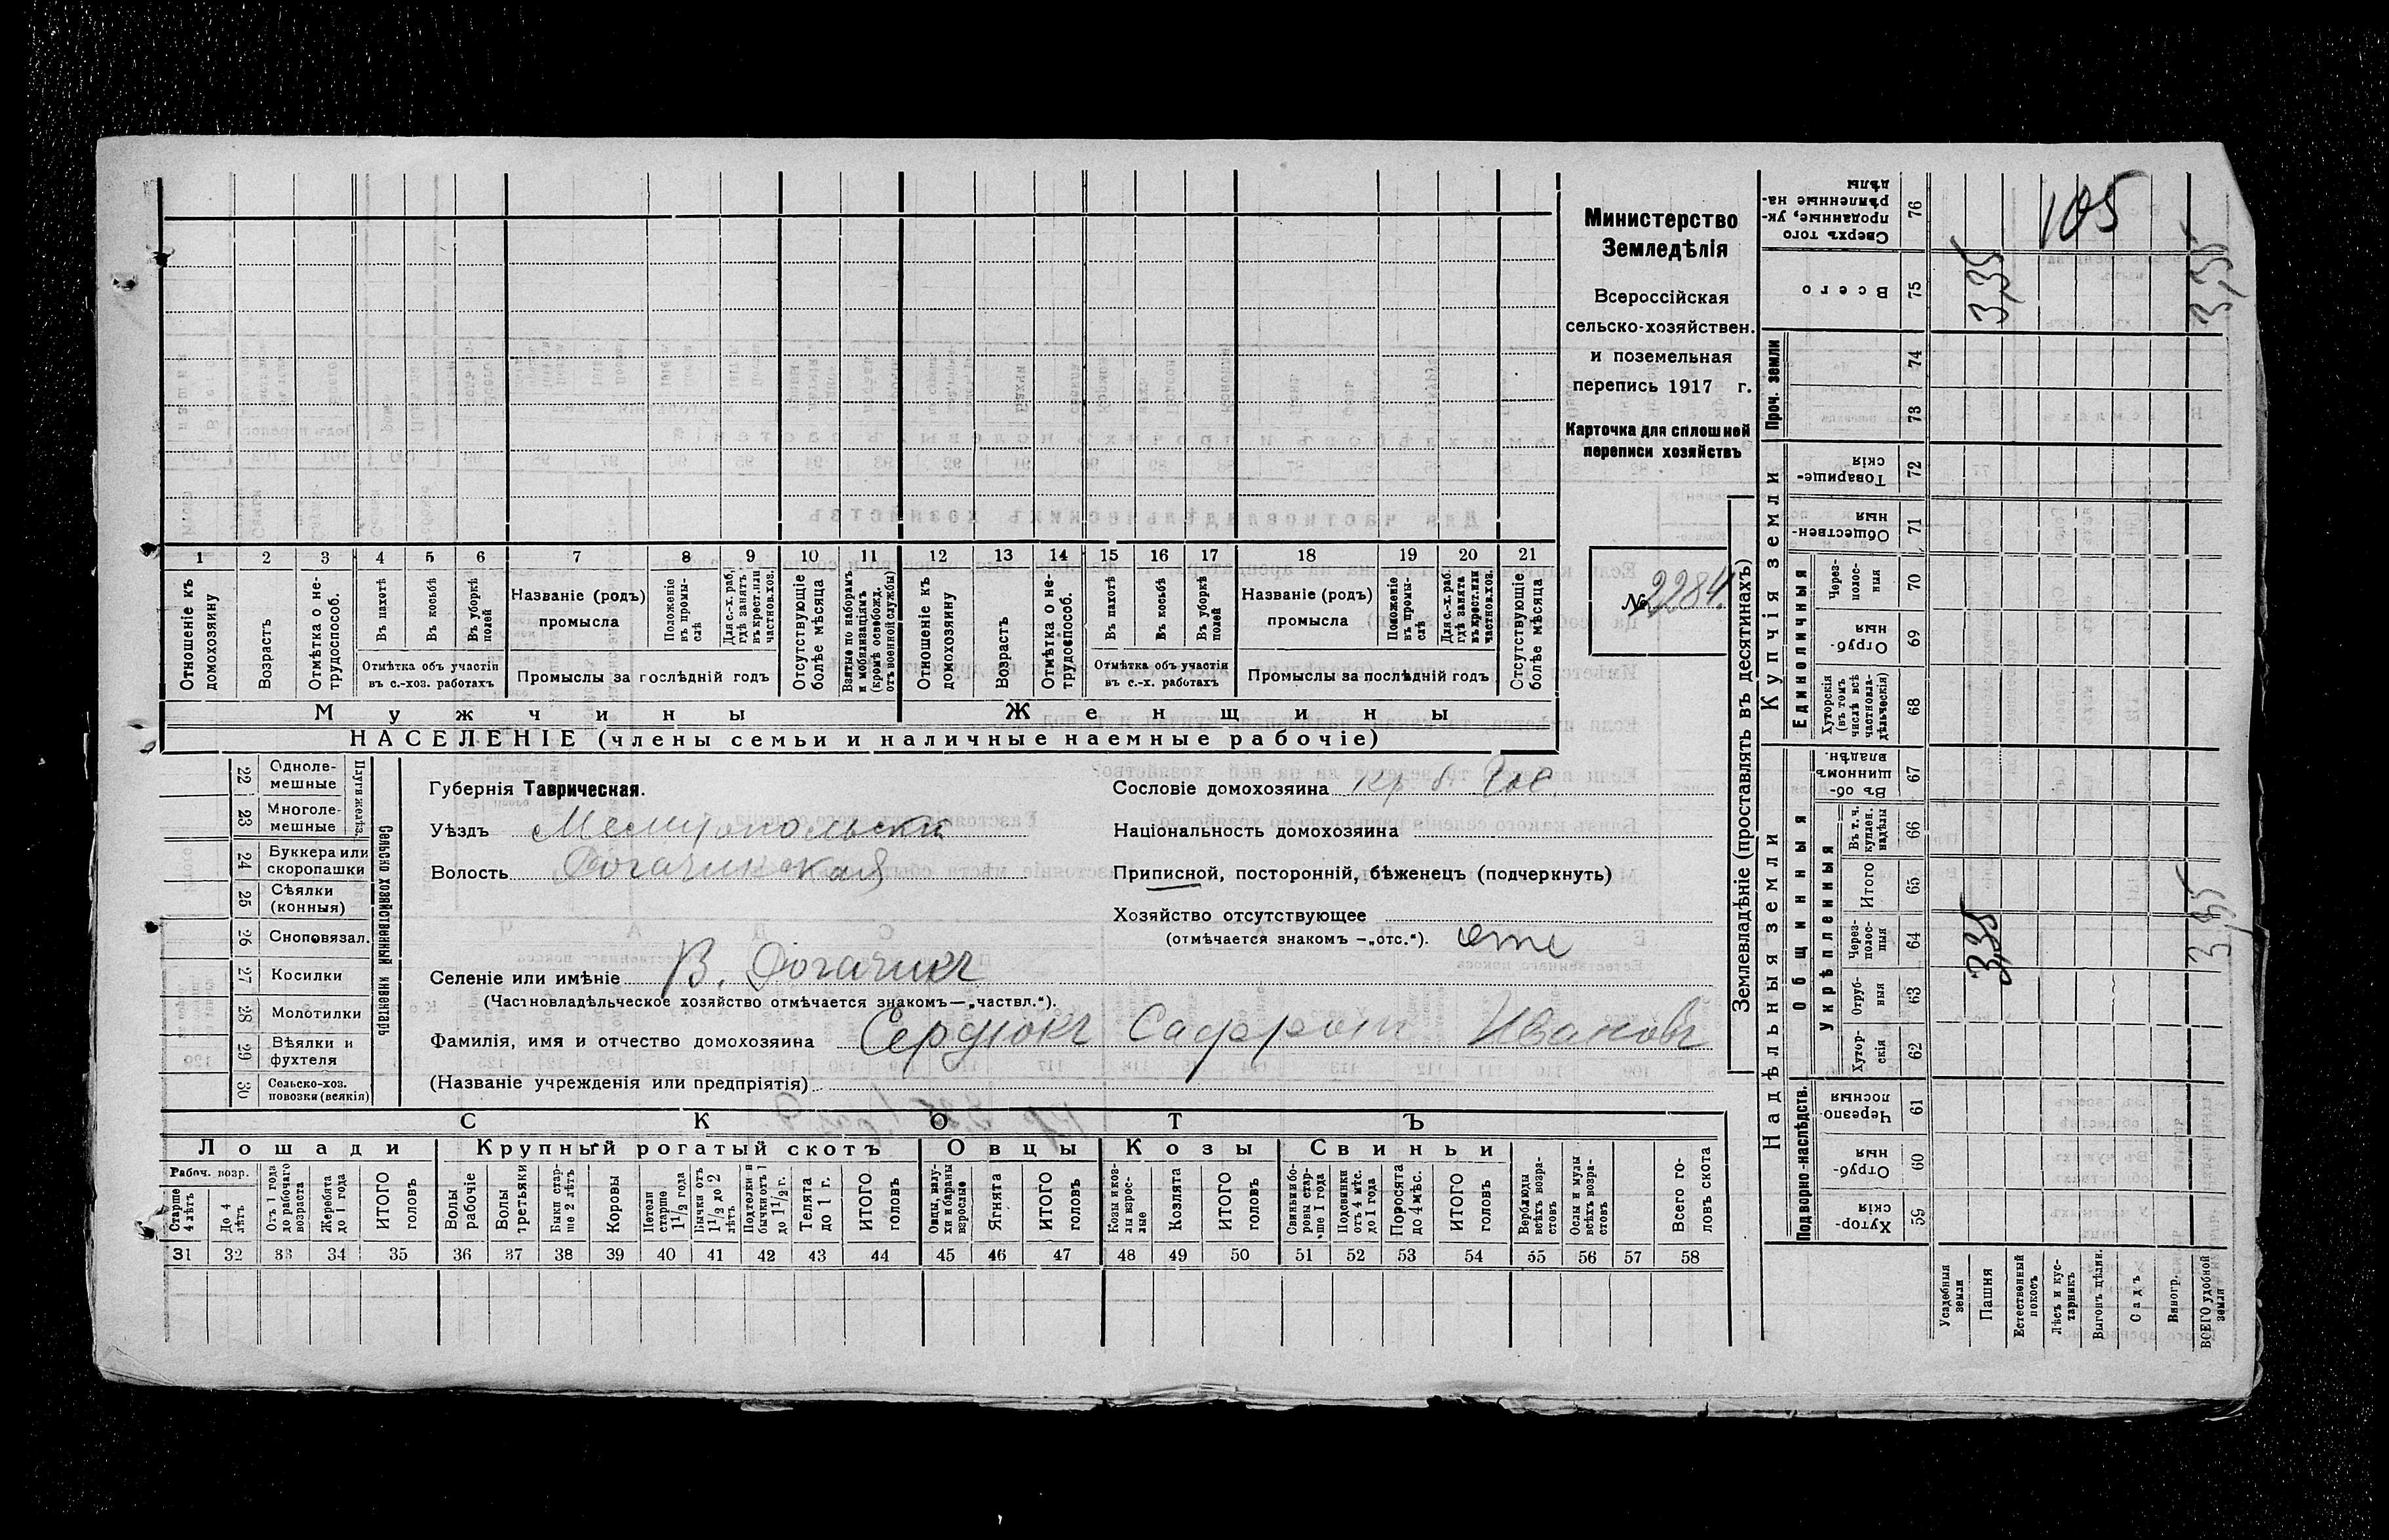 Министерство
Земледѣлія
Всероссійская
сельско-хозяйствен.
и поземельная
перепись 1917 г.
Карточка для сплошной
переписи хозяйствъ
№ 2284.
1 2 3 4 5 6 7 8 9 10 11 12 13 14 15 16 17 18 19 20 21
Отношеніе къ домохозяину
Возрастъ
Отмѣтка о не-трудоспособ.
Въ пахотѣ
Въ косьбѣ
Въ уборкѣ полей
Отмѣтка объ участіи
въ с.-хоз. работахъ
Названіе (родъ)
промысла
Положеніе въ промы-слѣ
Для с.-х. раб, гдѣ занятъ въ крест. или частнов. хоз.
Промыслы за послѣдній годъ
Отсутствующіе болѣе мѣсяца
Взятые по наборамъ и мобилизаціямъ (кромѣ освобожд. отъ военной службы)
Отношеніе къ домохозяину
Возрастъ
Отмѣтка о не-трудоспособ.
Въ пахотѣ
Въ косьбѣ
Въ уборкѣ полей
Отмѣтка объ участіи
въ с.-х. работахъ
Названіе (родъ)
промысла
Положеніе въ промы-слѣ
Для с.-х. раб. гдѣ занята въ крест. или частнов. хоз.
Промыслы за послѣдній годъ
Отсутствующіе болѣе мѣсяца
Мужчины
Женщины
НАСЕЛЕНІЕ (члены семьи и наличные наемные рабочіе)
Сельско хозяйственный инвентарь
Плуги желѣз.
22 Одноле-мешные
23 Многоле-мешные
24 Буккера или скоропашки
25 Сѣялки (конныя)
26 Сноповязал.
27 Косилки
28 Молотилки
29 Вѣялки и фухтеля
30 Сельско-хоз. повозки (всякія)
Губернія Таврическая.
Уѣздъ Мелитопольски
Волость Рогачикская
Селеніе или имѣніе В. Рогачикъ
(Частновладѣльческое хозяйство отмѣчается знакомъ—„частвл.“).
Сословіе домохозяина кр. б.
Національность домохозяина
Приписной, посторонній, бѣженецъ (подчеркнуть)
Хозяйство отсутствующее
(отмѣчается знакомъ —„отс.“). отс
Фамилія, имя и отчество домохозяина Сердюкъ Сафрон Ивановъ
(Названіе учрежденія или предпріятія)
СКОТЪ
Лошади
Крупный рогатый скотъ
Овцы
Козы
Свиньи
Рабоч. возр.
Старше 4 лѣтъ
До 4 лѣтъ
Отъ 1 года до рабочаго возраста
Жеребята до 1 года
ИТОГО головъ
Волы рабочіе
Волы третьяки
Быки стар-ше 2 лѣтъ
Коровы
Нетели старше 1 1/2 года
Бычки отъ 1 1/2 до 2 лѣтъ
Подтелки и бычки отъ 1 до 1 1/2 г.
Телята до 1 г.
ИТОГО головъ
Овцы, валу-хи и бараны взрослые
Ягнята
ИТОГО головъ
Козы и коз-лы взрос-лые
Козлята
ИТОГО головъ
Свиньи и бо-ровы стар-ше 1 года
Подсвинки отъ 4 мѣс. до 1 года
Поросята до 4 мѣс.
ИТОГО головъ
Верблюды всѣхъ возра-стовъ
Ослы и мулы всѣхъ возра-стовъ
Всего го-ловъ скота
31 32 33 34 35 36 37 38 39 40 41 42 43 44 45 46 47 48 49 50 51 52 53 54 55 56 57 58
Землевладѣніе (проставлять въ десятинахъ)
Купчія земли
Надѣльныя земли
76 Сверхъ того проданные, ук-рѣпленные на-дѣлы 105
75 Всего 3,35 3,35
Проч. земли
74
73
72 Товарище-скія
71 Обществен-ныя
Единоличныя
70 Через-полос-ныя
69 Отруб-ныя
68 Хуторскія (въ томъ числѣ всѣ частновла-дѣльческія)
Общинныя
67 Въ об-щинномъ владѣн.
Укрѣпленныя
66 Въ т. ч. куплен. надѣлы
65 Итого
64 Через-полос-ныя 3,35 3,35
63 Отруб-ныя
62 Хутор-скія
Подворно-наслѣдств.
61 Черезпо-лосныя
60 Отруб-ныя
59 Хутор-скія
Усадебныя земли
Пашня
Естественный покосъ
Лѣсъ и кус-тарникъ
Выгонъ цѣлин.
Садъ
Виногр.
ВСЕГО удобной земли